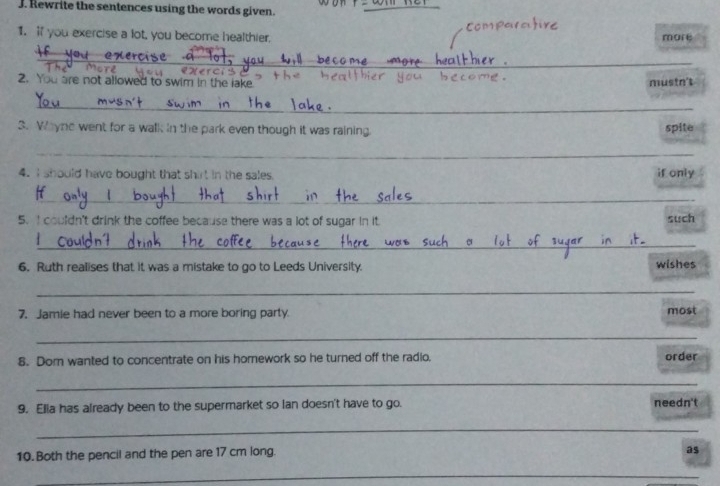 J. Rewrite the sentences using the words given.
won't = will not
comparative
1. If you exercise a lot, you become healthier. more
If you exercise a lot, you will become more healthier.
The more you exercise, the healthier you become.
2. You are not allowed to swim in the lake. mustn't
You musn't swim in the lake.
3. Wayne went for a walk in the park even though it was raining. spite
4. I should have bought that shirt in the sales. if only
If only I bought that shirt in the sales
5. I couldn't drink the coffee because there was a lot of sugar in it. such
I couldn't drink the coffee because there was such a lot of sugar in it.
6. Ruth realises that it was a mistake to go to Leeds University. wishes
7. Jamie had never been to a more boring party. most
8. Dom wanted to concentrate on his homework so he turned off the radio. order
9. Ella has already been to the supermarket so Ian doesn't have to go. needn't
10. Both the pencil and the pen are 17 cm long. as